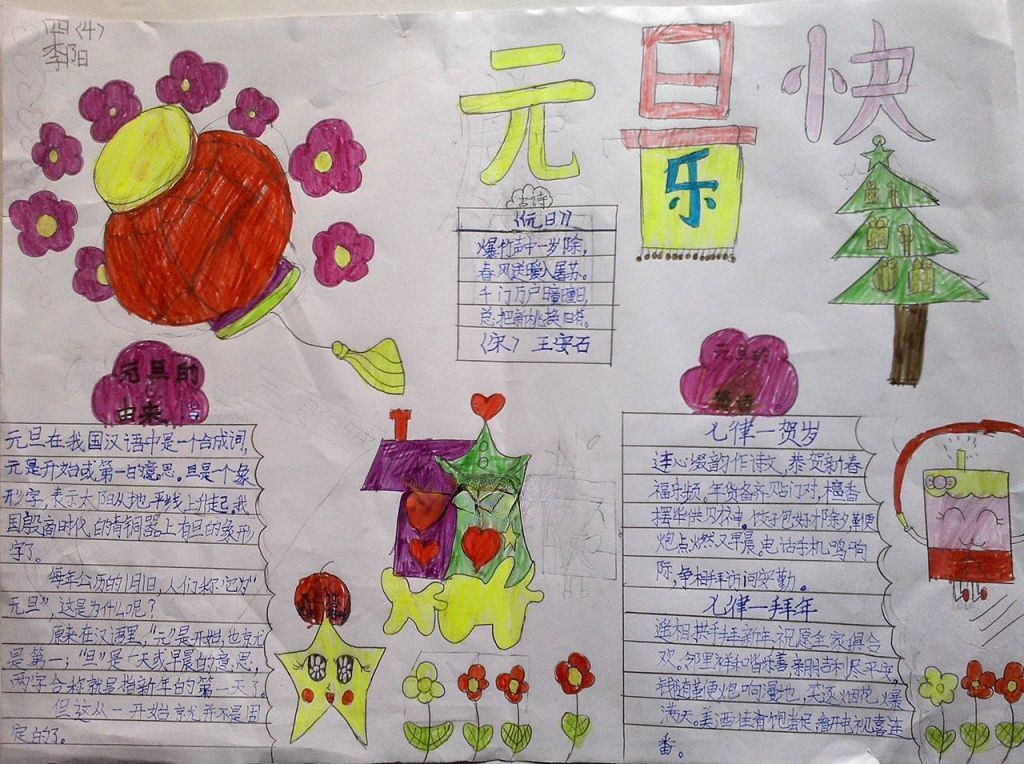 四(4)
李阳
元旦快
乐
古诗
《元日》
爆竹声中一岁除,
春风送暖入屠苏。
千门万户曈曈日,
总把新桃换旧符。
(宋) 王安石
元旦的
由来
元旦在我国汉语中是一个合成词,
元是开始或第一日意思。旦是一个象
形字,表示太阳从地平线上升起,我
国殷商时代的青铜器上有旦的象形
字了。
每年公历的1月1日,人们称它为“
元旦”,这是为什么呢?
原来在汉语里,“元”是开始,也就
是第一;“旦”是一天或早晨的意思,
两字合称就是指新年的第一天了。
但这从一开始就并不是固
定的了。
元旦的
七律一贺岁
连心缀韵作诗文,恭贺新春
福乐频。年货备齐贴门对,檀香
摆华供财神。饺子包好邪除夕,鞭
炮点燃又早晨。电话手机鸣响
际,争相拜访问安勤。
七律一拜年
递相拱手拜新年,祝愿全家俱合
欢。邻里祥和皆乐善,亲朋吉利尽平安。
钱塘鞭炮响漫地,买逐烟花爆
满天。美酒佳肴饱尝足,看开电视喜连
番。